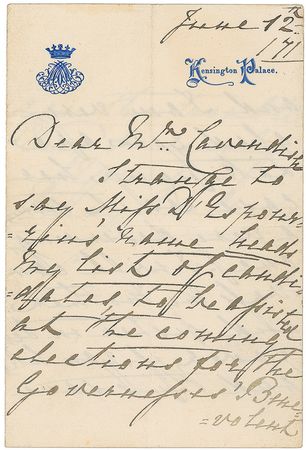 June 12th
/71
Kensington Palace.
Dear Mrs Cavendish
Strange to
say Miss D'Espour-
=rins' name heads
my list of candi-
=dates, to be assisted
at the coming
elections for the
Governesses' Bene-
=volent